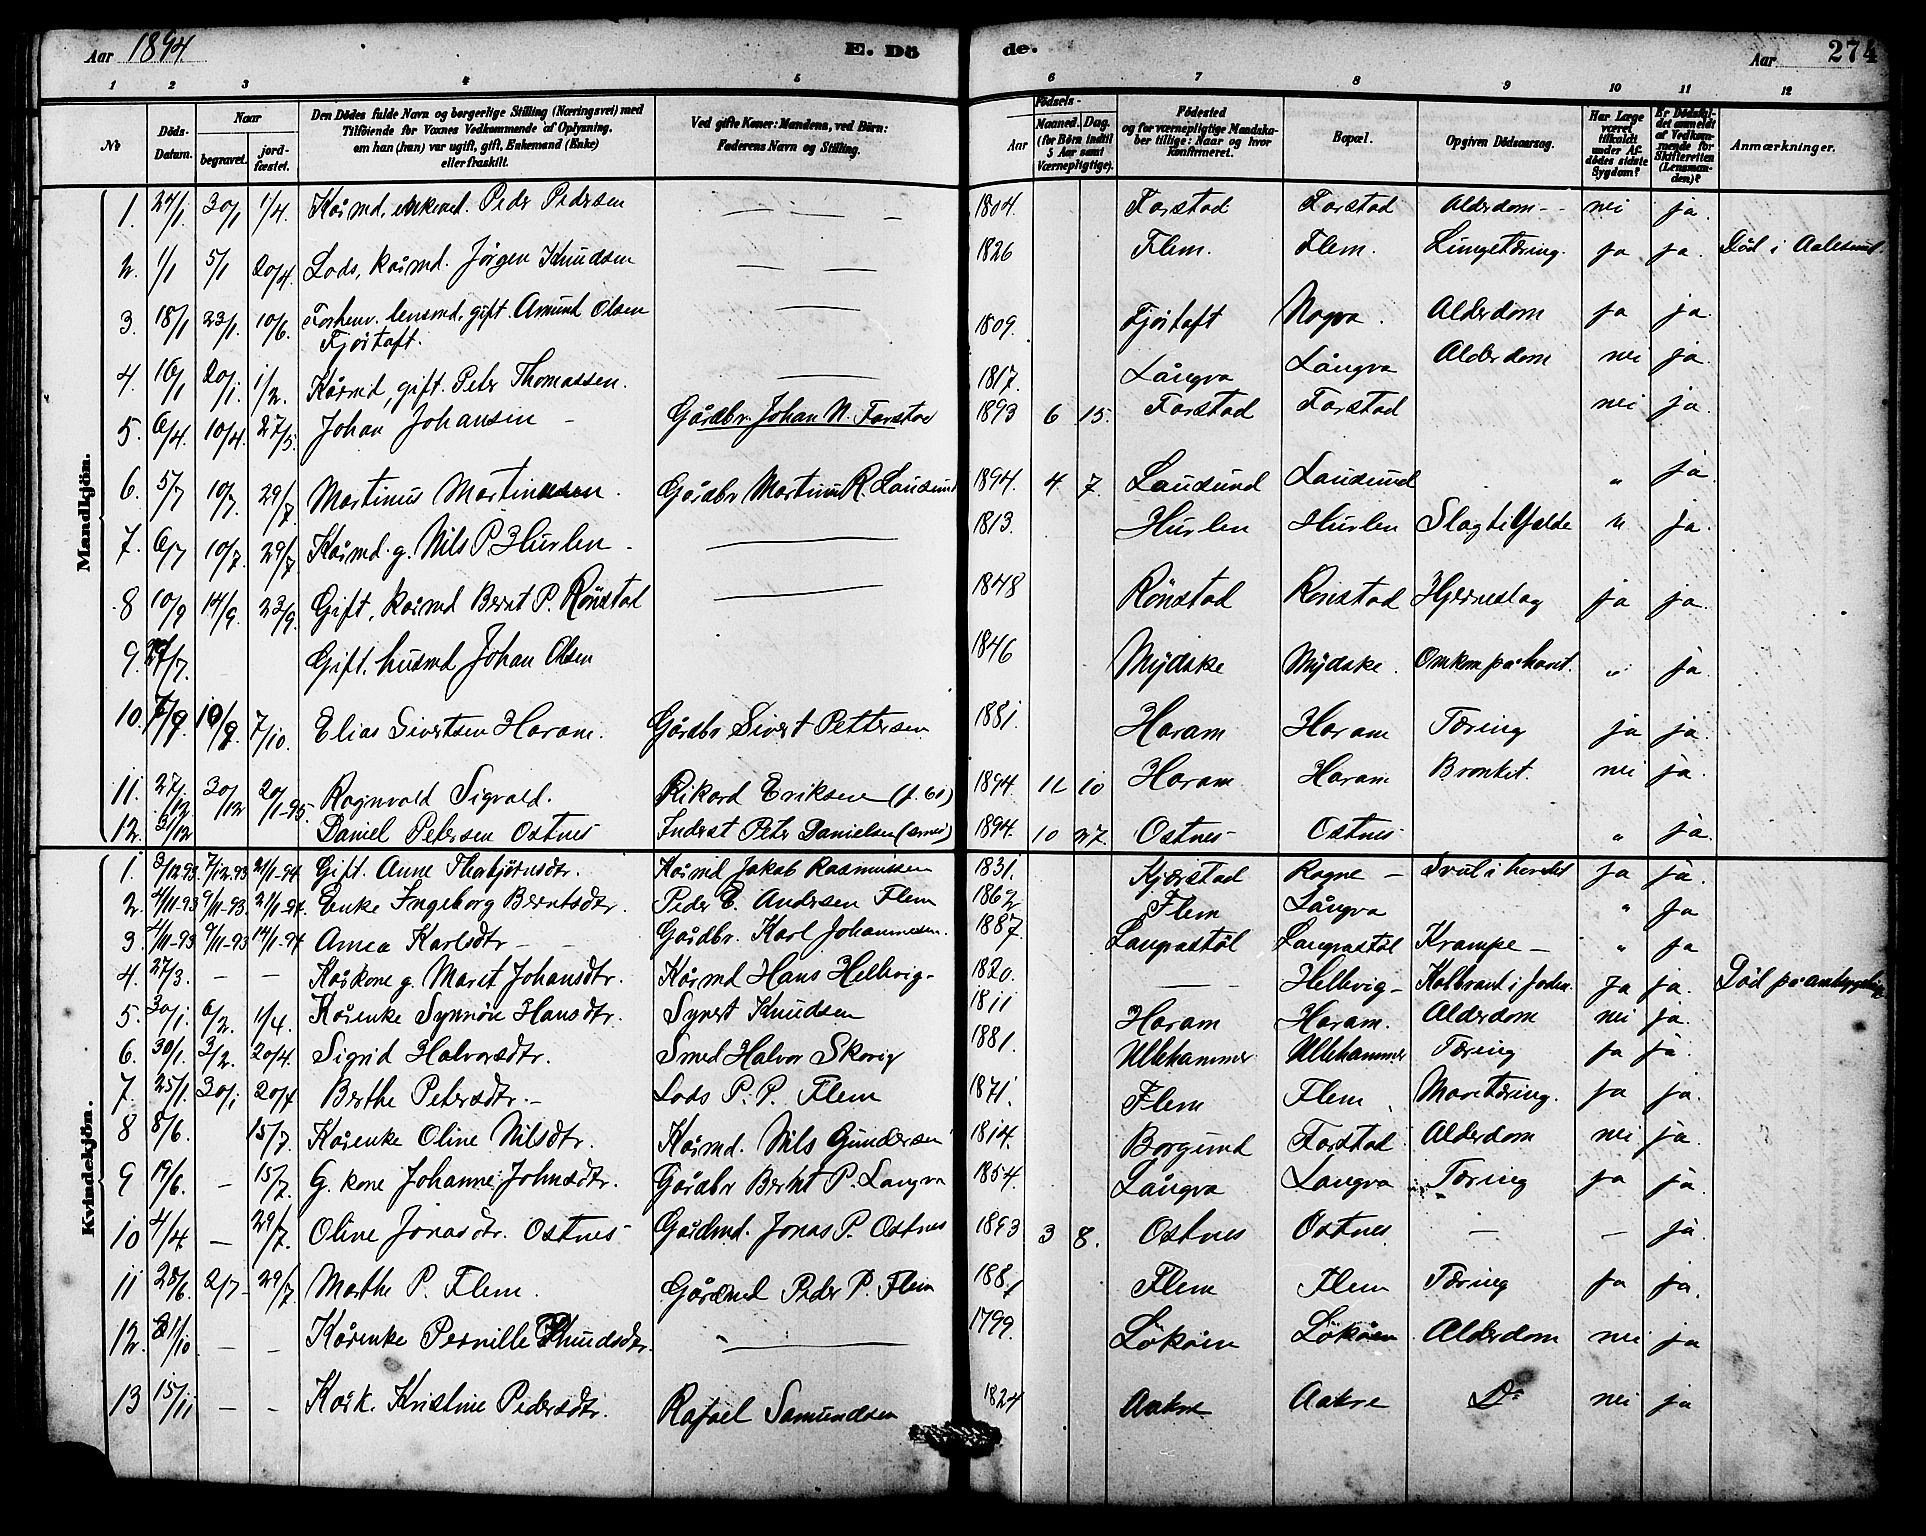 Aar 1894. E. Dö de. Aar 274
1 2 3 4 5 6 7 8 9 10 11 12
No
Döds-Datum.
Naar
begravet.
jord-fæstet.
Den Dödes fulde Navn og borgerlige Stilling (Næringsvei) med
Tilföiende for Voxnes Vedkommende af Oplysning,
om han (hun) var ugift, gift, Enkemand (Enke)
eller fraskilt.
Ved gifte Koner: Mandens, ved Börn:
Faderens Navn og Stilling.
Födsels-
Aar
Maaned. Dag.
(for Börn indtil
5 Aar samt
Værnepligtige).
Födested
og for værnepligtige Mandska-
ber tillige: Naar og hvor
konfirmeret.
Bopæl.
Opgiven Dödsaarsag.
Har Læge
været
tilkaldt
under Af-
dödes sidste
Sygdom?
Er Dödsfal-
det anmeldt
af Vedkom-
mende for
Skifteretten
(Lensman-
den)?
Anmærkninger.
Mandkjön.
1. 24/1 30/1 1/4. Kårmd, enkemd. Peder Pedersen — — — 1804. Farstad Farstad Alderdom - nei ja.
2. 1/1 5/1 20/4. Lods, kårmd. Jörgen Knudsen — — 1826 Flem. Flem. Lungetæring. ja ja. Död i Aalesund.
3. 18/1 23/1. 10/6. Forhenv. lensmd, gift. Amund Olsen
Fjörtoft. — 1809. Fjörtoft Nogva. Alderdom ja ja.
4. 16/1 20/1. 1/2. Kårmd, gift. Peter Thomassen. — 1817. Långva Långva Alderdom nei ja.
5. 6/4. 10/4. 27/5. Johan Johansen - Gårdbr. Johan N. Farstad 1893 6 15. Farstad Farstad nei ja.
6. 5/7 10/7. 29/7 Martinus Martinussen. Gårdbr Martinus R. Lausund 1894. 4 7. Lausund Lausund „ ja.
7. 6/7 10/7. 29/7 Kårmd. g. Nils P. Hurlen — 1813. Hurlen Hurlen Slagtilfælde „ ja.
8 10/9 14/9. 23/9. Gift, kårmd Bernt P. Rönstad — 1848 Rönstad Rönstad Hjerneslag ja ja.
9. 27/7. Gift. husmd Johan Olsen 1846 Mydske Mydske. Omkom på havet. „ ja.
10. 7/9. 10/9. 7/10. Elias Sivertsen Haram. Gårdbr Sivert Pettersen 1881. Haram Haram Tæring ja ja.
11. 27/12 30/12 20/1-95. Ragnvald Sigvald. Rikard Eriksen (f. 61) 1894. 11 10 Haram Haram Bronkit. nei ja.
12. 3/12 Daniel Petersen Ostnes Inderst Peter Danielsen 1894. 10 27. Ostnes Ostnes „ ja.
Kvindekjön.
1. 3/12 93. 7/12. 93 21/1-94. Gift. Anne Thorbjörnsdtr. Kårmd Jakob Rasmussen 1831. Kjærstad Rogne — Svul i hovedet ja ja.
2. 4/11-93 9/11-93. 21/1-94. Enke Ingeborg Berntsdtr. Peder E. Andersen Flem 1862 Flem Långva „ ja
3. 4/11-93 9/11-93 14/1-94 Annea Karlsdtr — Gårdbr. Karl Johannesen. 1887. Langvastöl Langvastöl Krampe — „ ja
4. 27/3. — — Kårkone g. Maret Johansdtr. Kårmd Hans Hellevig - 1820. — Hellevig - Koldbrand i foden. ja ja.
5. 30/1. 6/2. 1/4. Kårenke Synnöv Hansdtr. Synert Knudsen 1811 Haram Haram. Alderdom nei ja.
6. 30/1. 3/2. 20/4. Sigrid Halvorsdtr. Smed Halvor Skovig 1881. Ullehammer Ullehammer Tæring ja ja.
7. 25/1. 30/1 20/4 Berthe Petersdtr. - Lods P. P. Flem 1871. Flem Flem Mavetæring. ja ja.
8 8/6. 15/7. Kårenke Oline Nilsdtr. Kårmd. Nils Gundersen 1814. Borgund Farstad Alderdom nei ja.
9 19/6. — 15/7. G. kone Johanne Johnsdtr. Gårdbr Bernt P. Langva 1854. Långva Langva Tæring ja ja.
10 4/4. — 29/7. Oline Jonasdtr. Ostnes Gårdmd. Jonas P. Ostnes 1893 3 8. Ostnes Ostnes — — ja.
11 28/6. 2/7 - 29/7 Marthe P. Flem. Gårdmd Peder P. Flem 1881 Flem Flem Tæring ja ja.
12. 21/10 — — Kårenke Pernille Knudsdtr. — 1799. Lökåen Lökåen Alderdom nei ja
13 15/11 — — Kårk. Kristine Pedersdtr. Rafael Samundsen 1824 Aakre Aakre Do nei ja